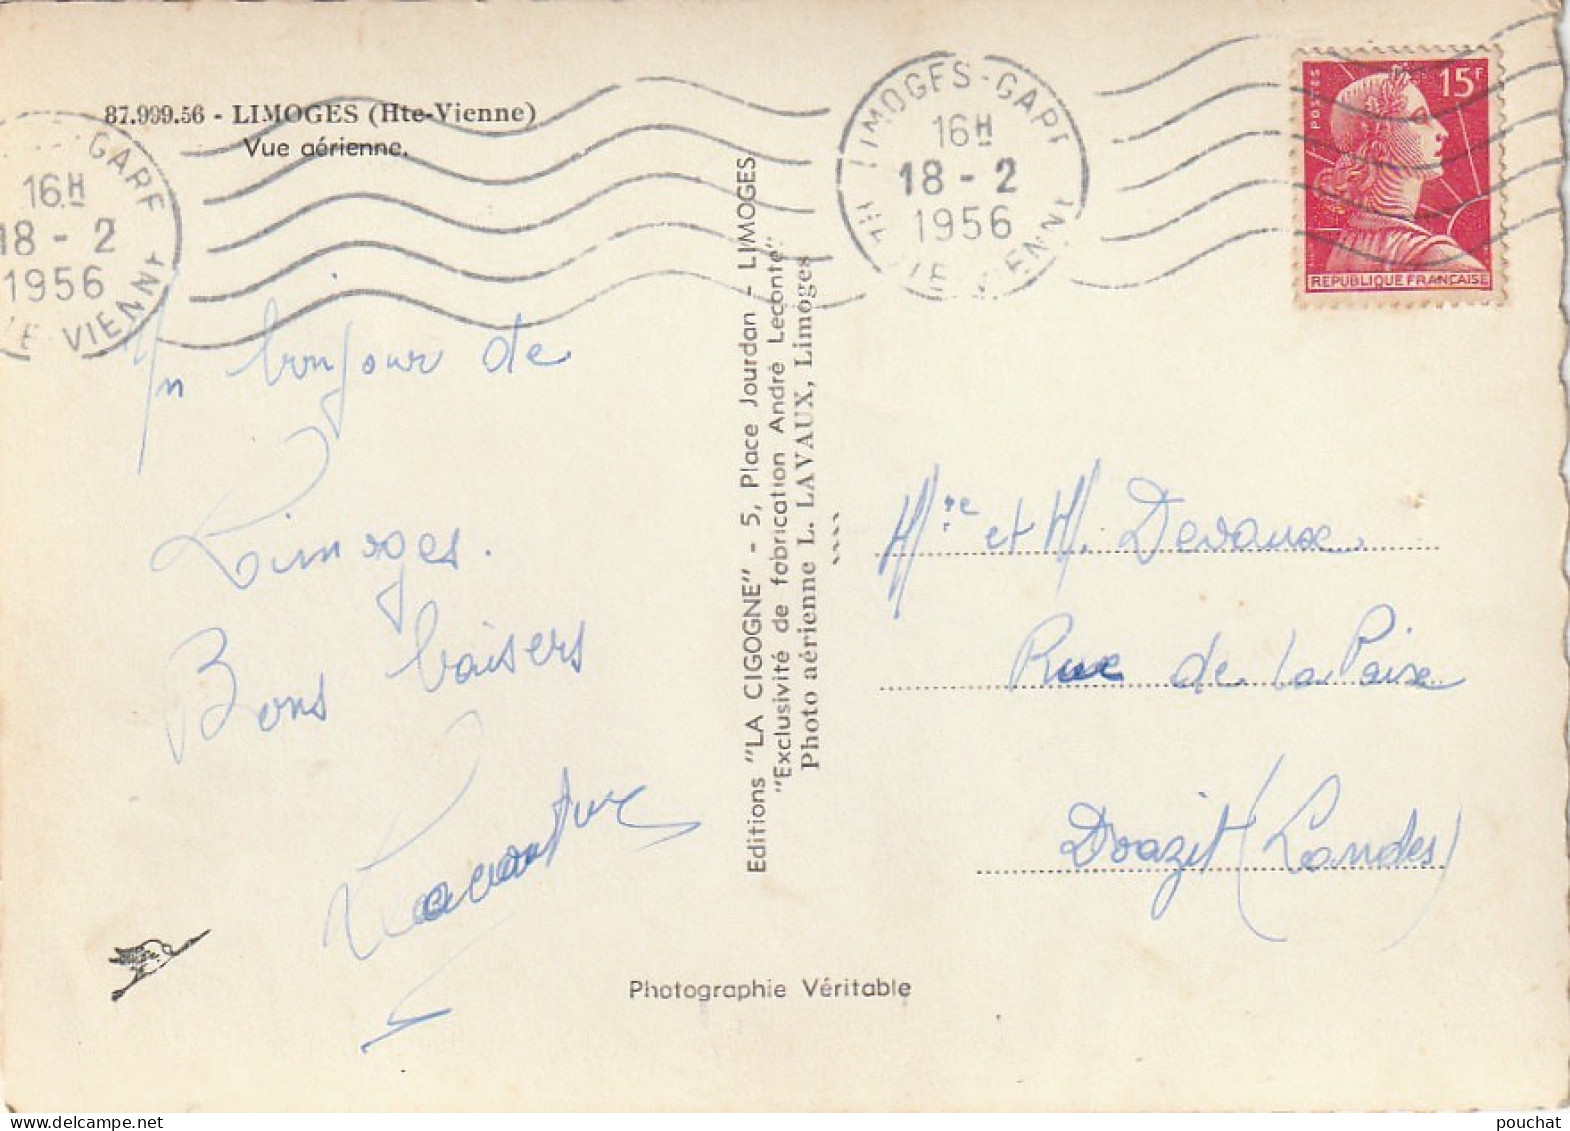 87.999.56 - LIMOGES (Hte-Vienne)
Vue aérienne.
GARE
16H
18 - 2
1956
VIENN
LIMOGES-GARE
16H
18 - 2
1956
HTE VIENNE
POSTES
15F
REPUBLIQUE FRANÇAISE
Un bonjour de
Limoges.
Bons baisers
Editions "LA CIGOGNE" - 5, Place Jourdan - LIMOGES
"Exclusivité de fabrication André Leconte"
Photo aérienne L. LAVAUX, Limoges
Mre et M. Devaux
Rue de la Paix
Doazit (Landes)
Photographie Véritable
pouchat